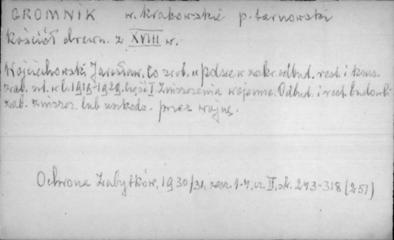 GROMNIK w. krakowskie p. tarnowski
Kościół drewn. z XVIII w.
Wojciechowski Jarosław. Co zrob. w Polsce w zakr. odbud. rest. i kons.
zab. szt. w l. 1919-1929. Część I. Zniszczenia wojenne. Odbud. i rest. budowli
zab. zniszcz. lub uszkodz. przez wojnę.
Ochrona Zabytków, 1930/31, zesz. 1-4, cz. II, str. 273-318 (251)